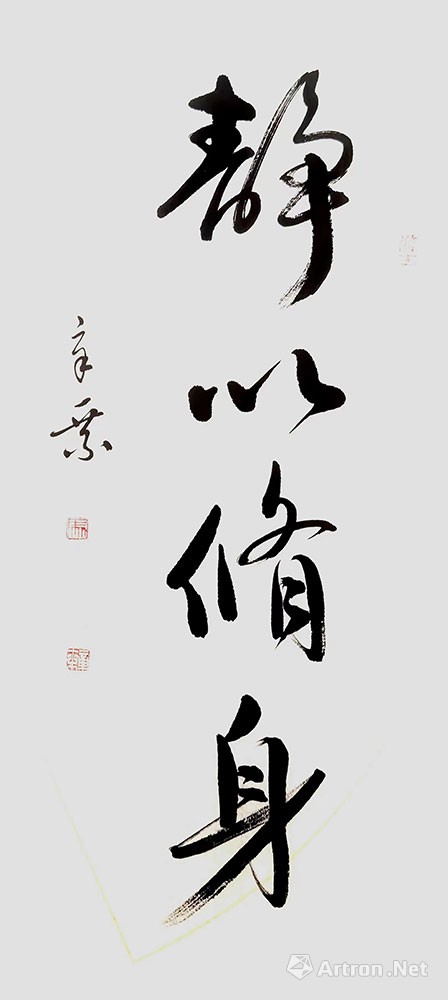 静以脩身
Artron.Net